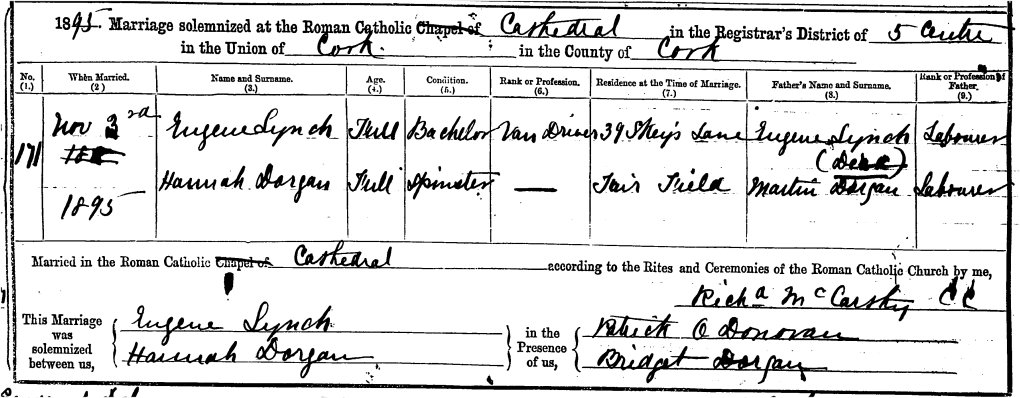 1895. Marriage solemnized at the Roman Catholic Chapel of Cathedral in the Registrar's District of 5 Centre
in the Union of Cork. in the County of Cork
No. (1.) When Married. (2) Name and Surname. (3.) Age. (4.) Condition. (5.) Rank or Profession. (6.) Residence at the Time of Marriage. (7.) Father's Name and Surname. (8.) Rank or Profession of Father. (9.)
171 Nov 3rd Eugene Lynch Full Bachelor Van Driver 39 Skeys Lane Eugene Lynch Labourer
18
Hannah Dorgan Full Spinster — Fair Field Martin Dorgan Labourer
1895
Married in the Roman Catholic Chapel of Cathedral according to the Rites and Ceremonies of the Roman Catholic Church by me,
Richd McCarthy CC
This Marriage was solemnized between us, Eugene Lynch in the Presence of us, Patrick O Donovan
Hannah Dorgan Bridget Dorgan